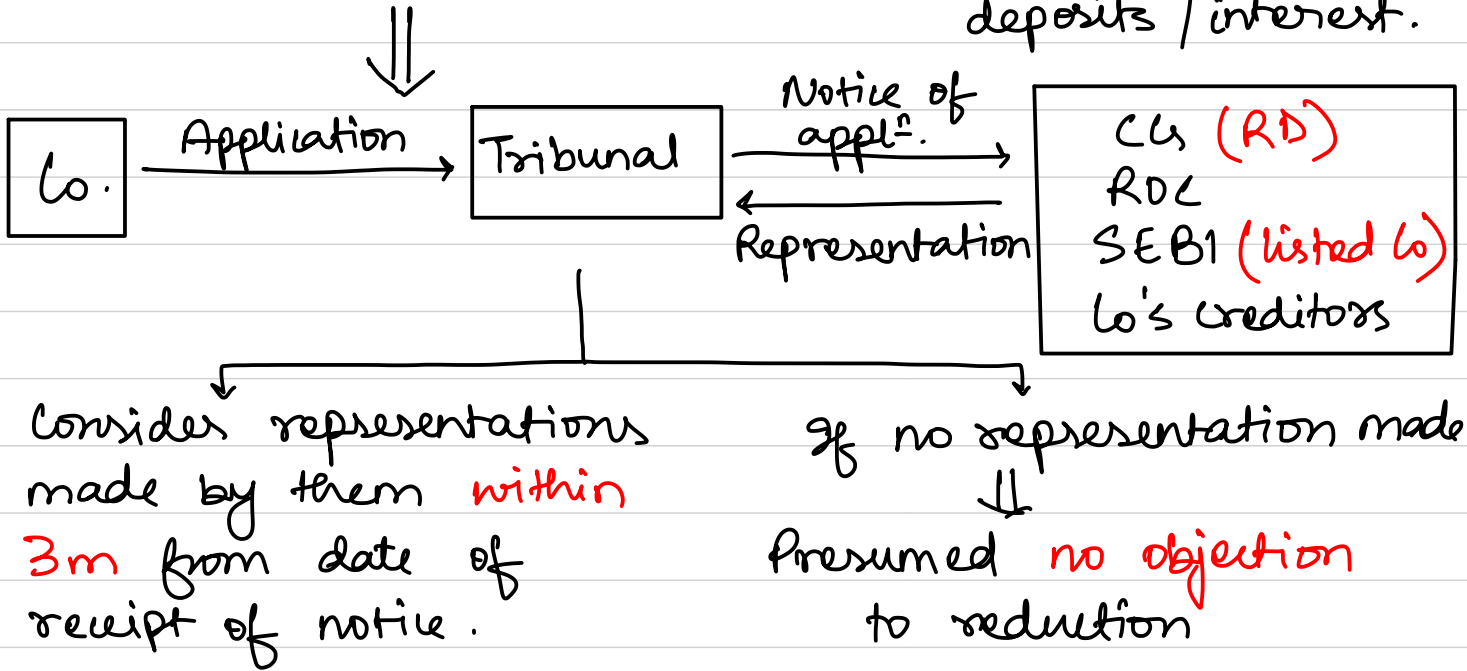 deposits / interest.
Co.
Application
Tribunal
Notice of
appl⁻ⁿ.
Representation
CG (RD)
ROC
SEBI (listed Co)
Co's creditors
Considers representations
made by them within
3m from date of
receipt of notice.
If no representation made
Presumed no objection
to reduction